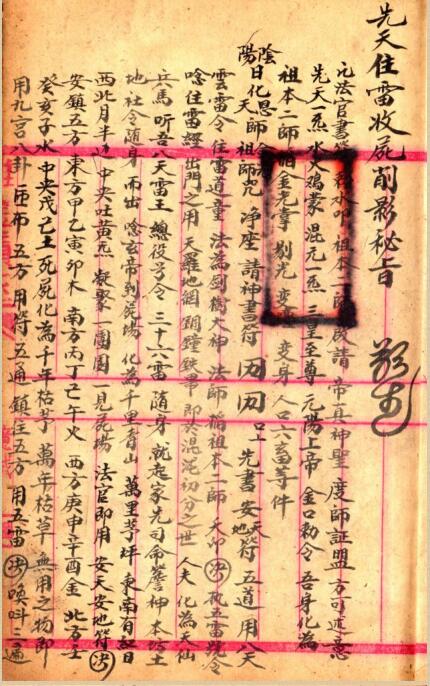 先天住雷收屍削影秘旨
凡法官書符 祖本二師 啟請 帝真神聖 度師証盟 方可述意
先天一炁 水火鴻蒙 混元一炁 三皇至尊 元陽上帝 金口勅令 吾身化為
祖本二師 金光 變身 人口六畜等件
陰陽日化恩 天師 祖師咒 净座 請神書符 先書安天地符 五道 用八天
雲雷令 住雷道童 法為剑樹大神 法師 稱祖本二師 执五雷號令
唸住雷經 出門之用 天羅地網 銅鐘鉄甲 即於混沌初分之世 人夫化為天仙
兵馬 听吾八天雷王 總役子令 三十六雷 隨身 就起家先司命 簷神 本坊土
地社令隨身 而出 唸玄帝到屍場 化為千里青山 萬里茅坪 東南有紅日
西北月半边 中央吐黄炁 凝聚一團圓 一見屍場 法官即用 安天安地符
安鎮五方 東方甲乙寅卯木 南方丙丁巳午火 西方庚申辛酉金 北方壬
癸亥子水 中央戊己土 死屍化為千年枯茅 萬年枯草 無用之物 即
用九宫八卦 匝布 五方 用符 五通 鎮住五方 用五雷 喚呌三遍